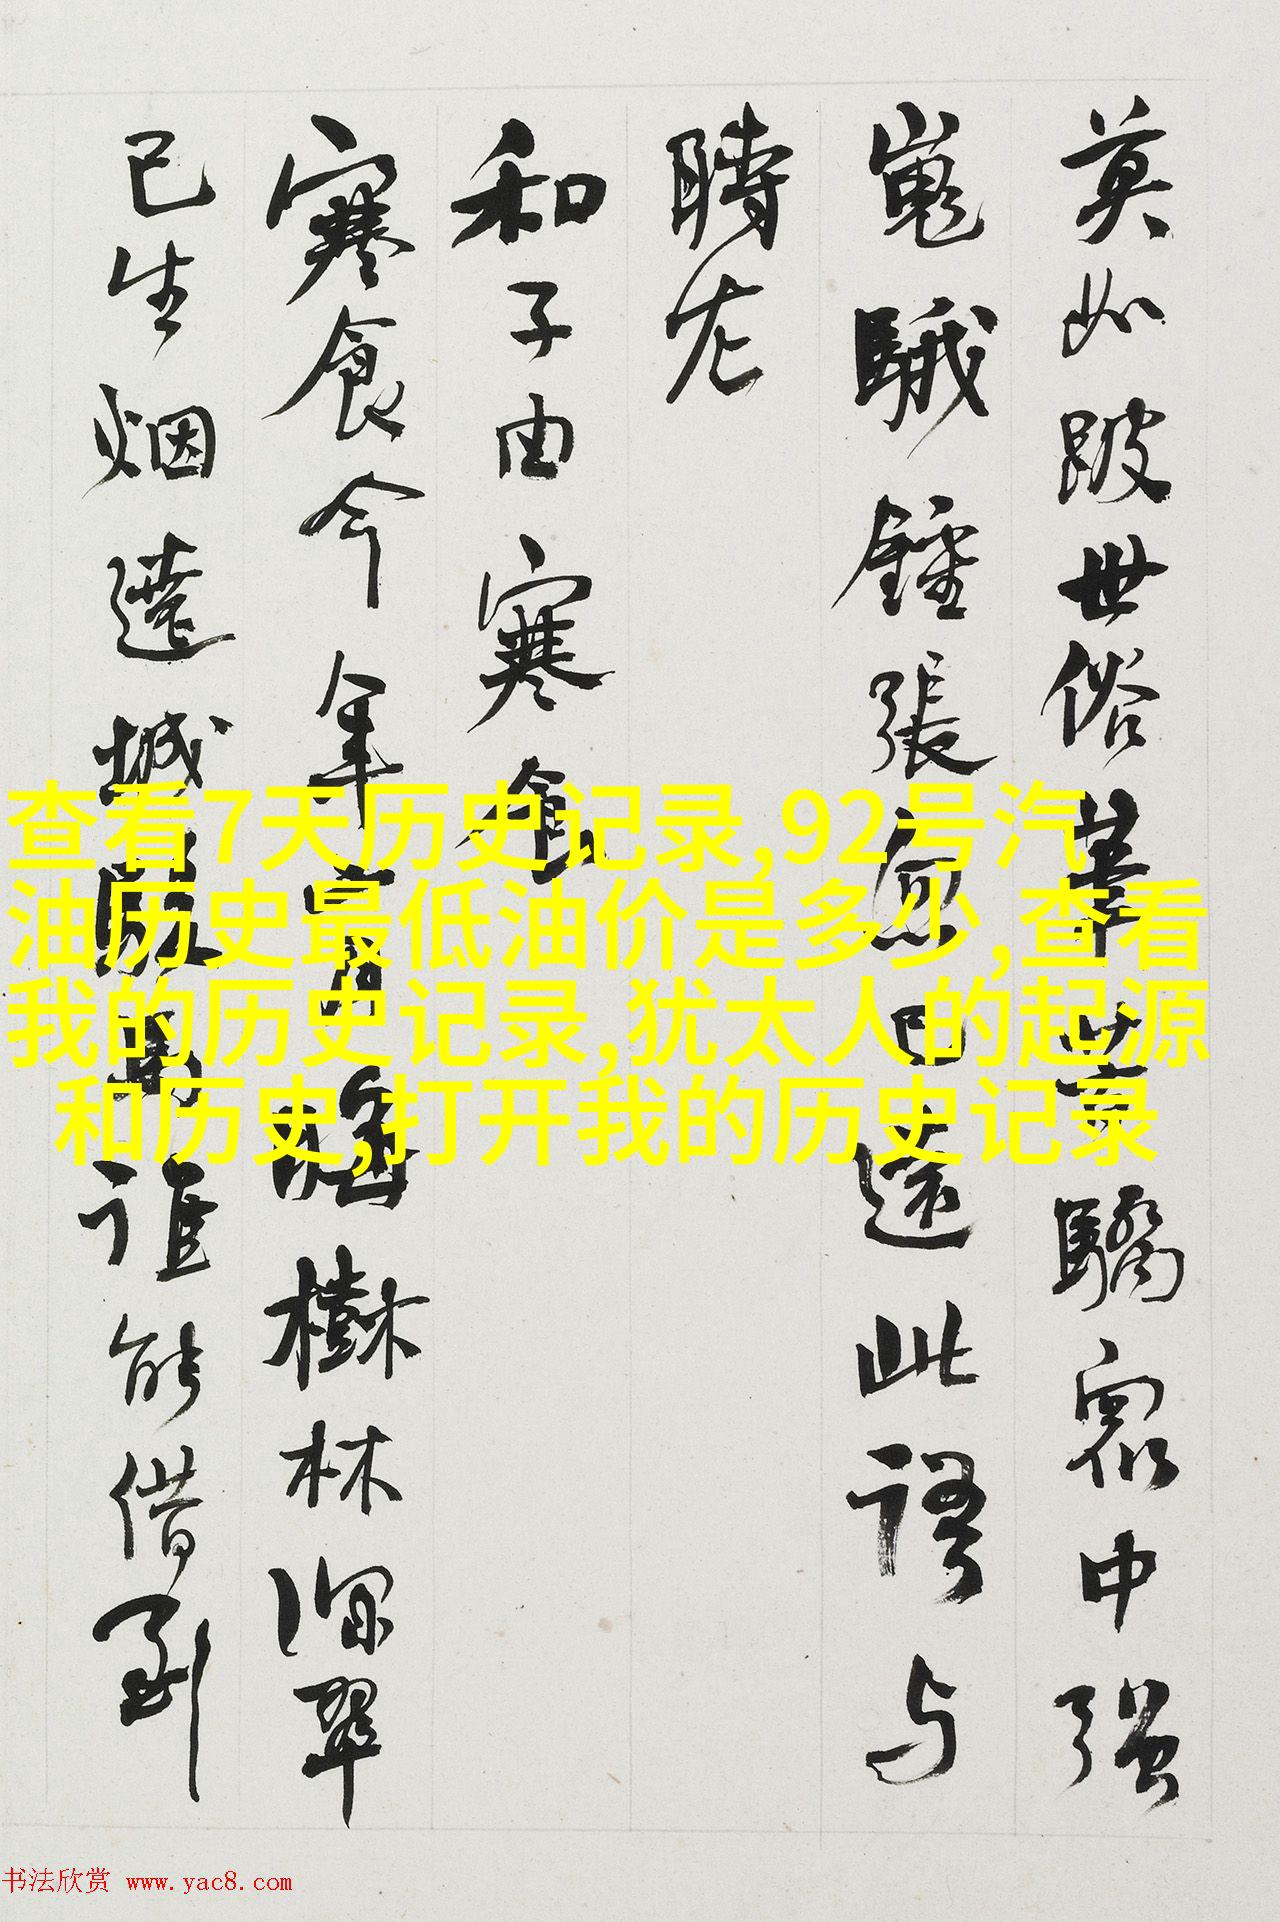 莫如跛世俗笑中驕寢中强
嵬騀鍾張忽已遠此語与
時左
和子由寒食
寒食今年樹林深翠
已生烟遶城駿馬誰能借
查看7天历史记录,92号汽
油历史最低油价是多少,查看
我的历史记录,犹太人的起源
和历史,打开我的历史记录
书法欣赏 www.yac8.com